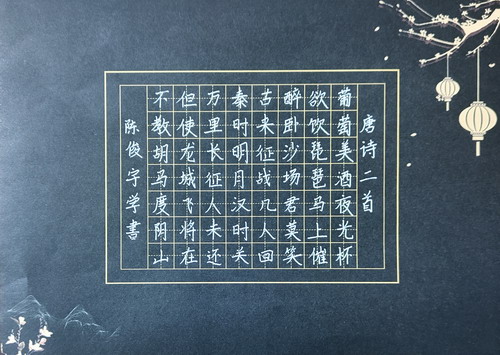 唐诗二首
葡萄美酒夜光杯
欲饮琵琶马上催
醉卧沙场君莫笑
古来征战几人回
秦时明月汉时关
万里长征人未还
但使龙城飞将在
不教胡马度阴山
陈俊宇学書